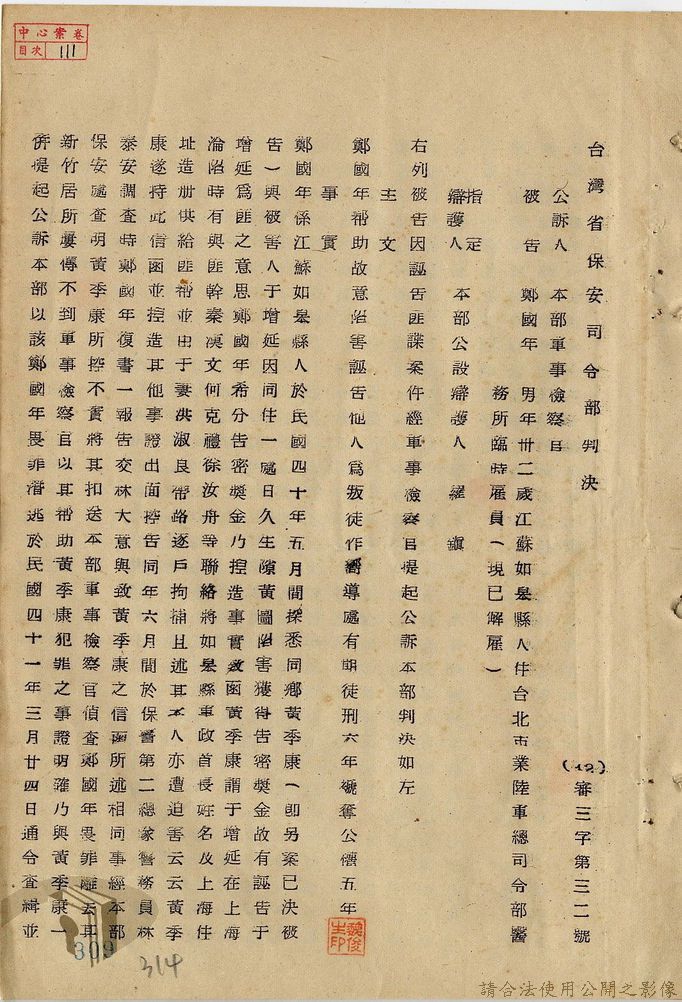 中心案卷
目次 111
台灣省保安司令部判決
(42)審三字第三二號
公訴人 本部軍事檢察官
被告 鄭國年 男年卅二歲江蘇如皋縣人住台北市業陸軍總司令部醫
務所臨時雇員(現已解雇)
指定
辯護人 本部公設辯護人 羅
右列被告因誣告匪諜案件經軍事檢察官提起公訴本部判決如左
主文
鄭國年帮助故意陷害誣告他人為叛徒作嚮導處有期徒刑六年褫奪公權五年
事實
鄭國年係江蘇如皋縣人於民國四十年五月間探悉同鄉黃季康(即另案已決被
告)與被害人于增延因同住一處日久生隙黃圖陷害獲得告密獎金故有誣告于
增延為匪之意思鄭國年希分告密獎金乃揑造事實致函黃季康謂于增延在上海
淪陷時有與匪幹秦漢文何克禮徐汝舟等聯絡將如皋縣軍政首長姓名及上海住
址造册供給匪帮並由于妻洪淑良帶路逐戶拘捕且述其本人亦遭迫害云云黃季
康遂持此信函並揑造其他事證出面控告同年六月間於保警第二總隊警務員林
泰安調查時鄭國年復書一報告交林大意與致黃季康之信函所述相同事經本部
保安處查明黃季康所控不實將其扣送本部軍事檢察官偵查鄭國年畏罪離去其
新竹居所屢傳不到軍事檢察官以其帮助黃季康犯罪之事證明確乃與黃季康一
併提起公訴本部以該鄭國年畏罪潛逃於民國四十一年三月廿四日通令查緝並
魏俊生印
309
314
請合法使用公開之影像